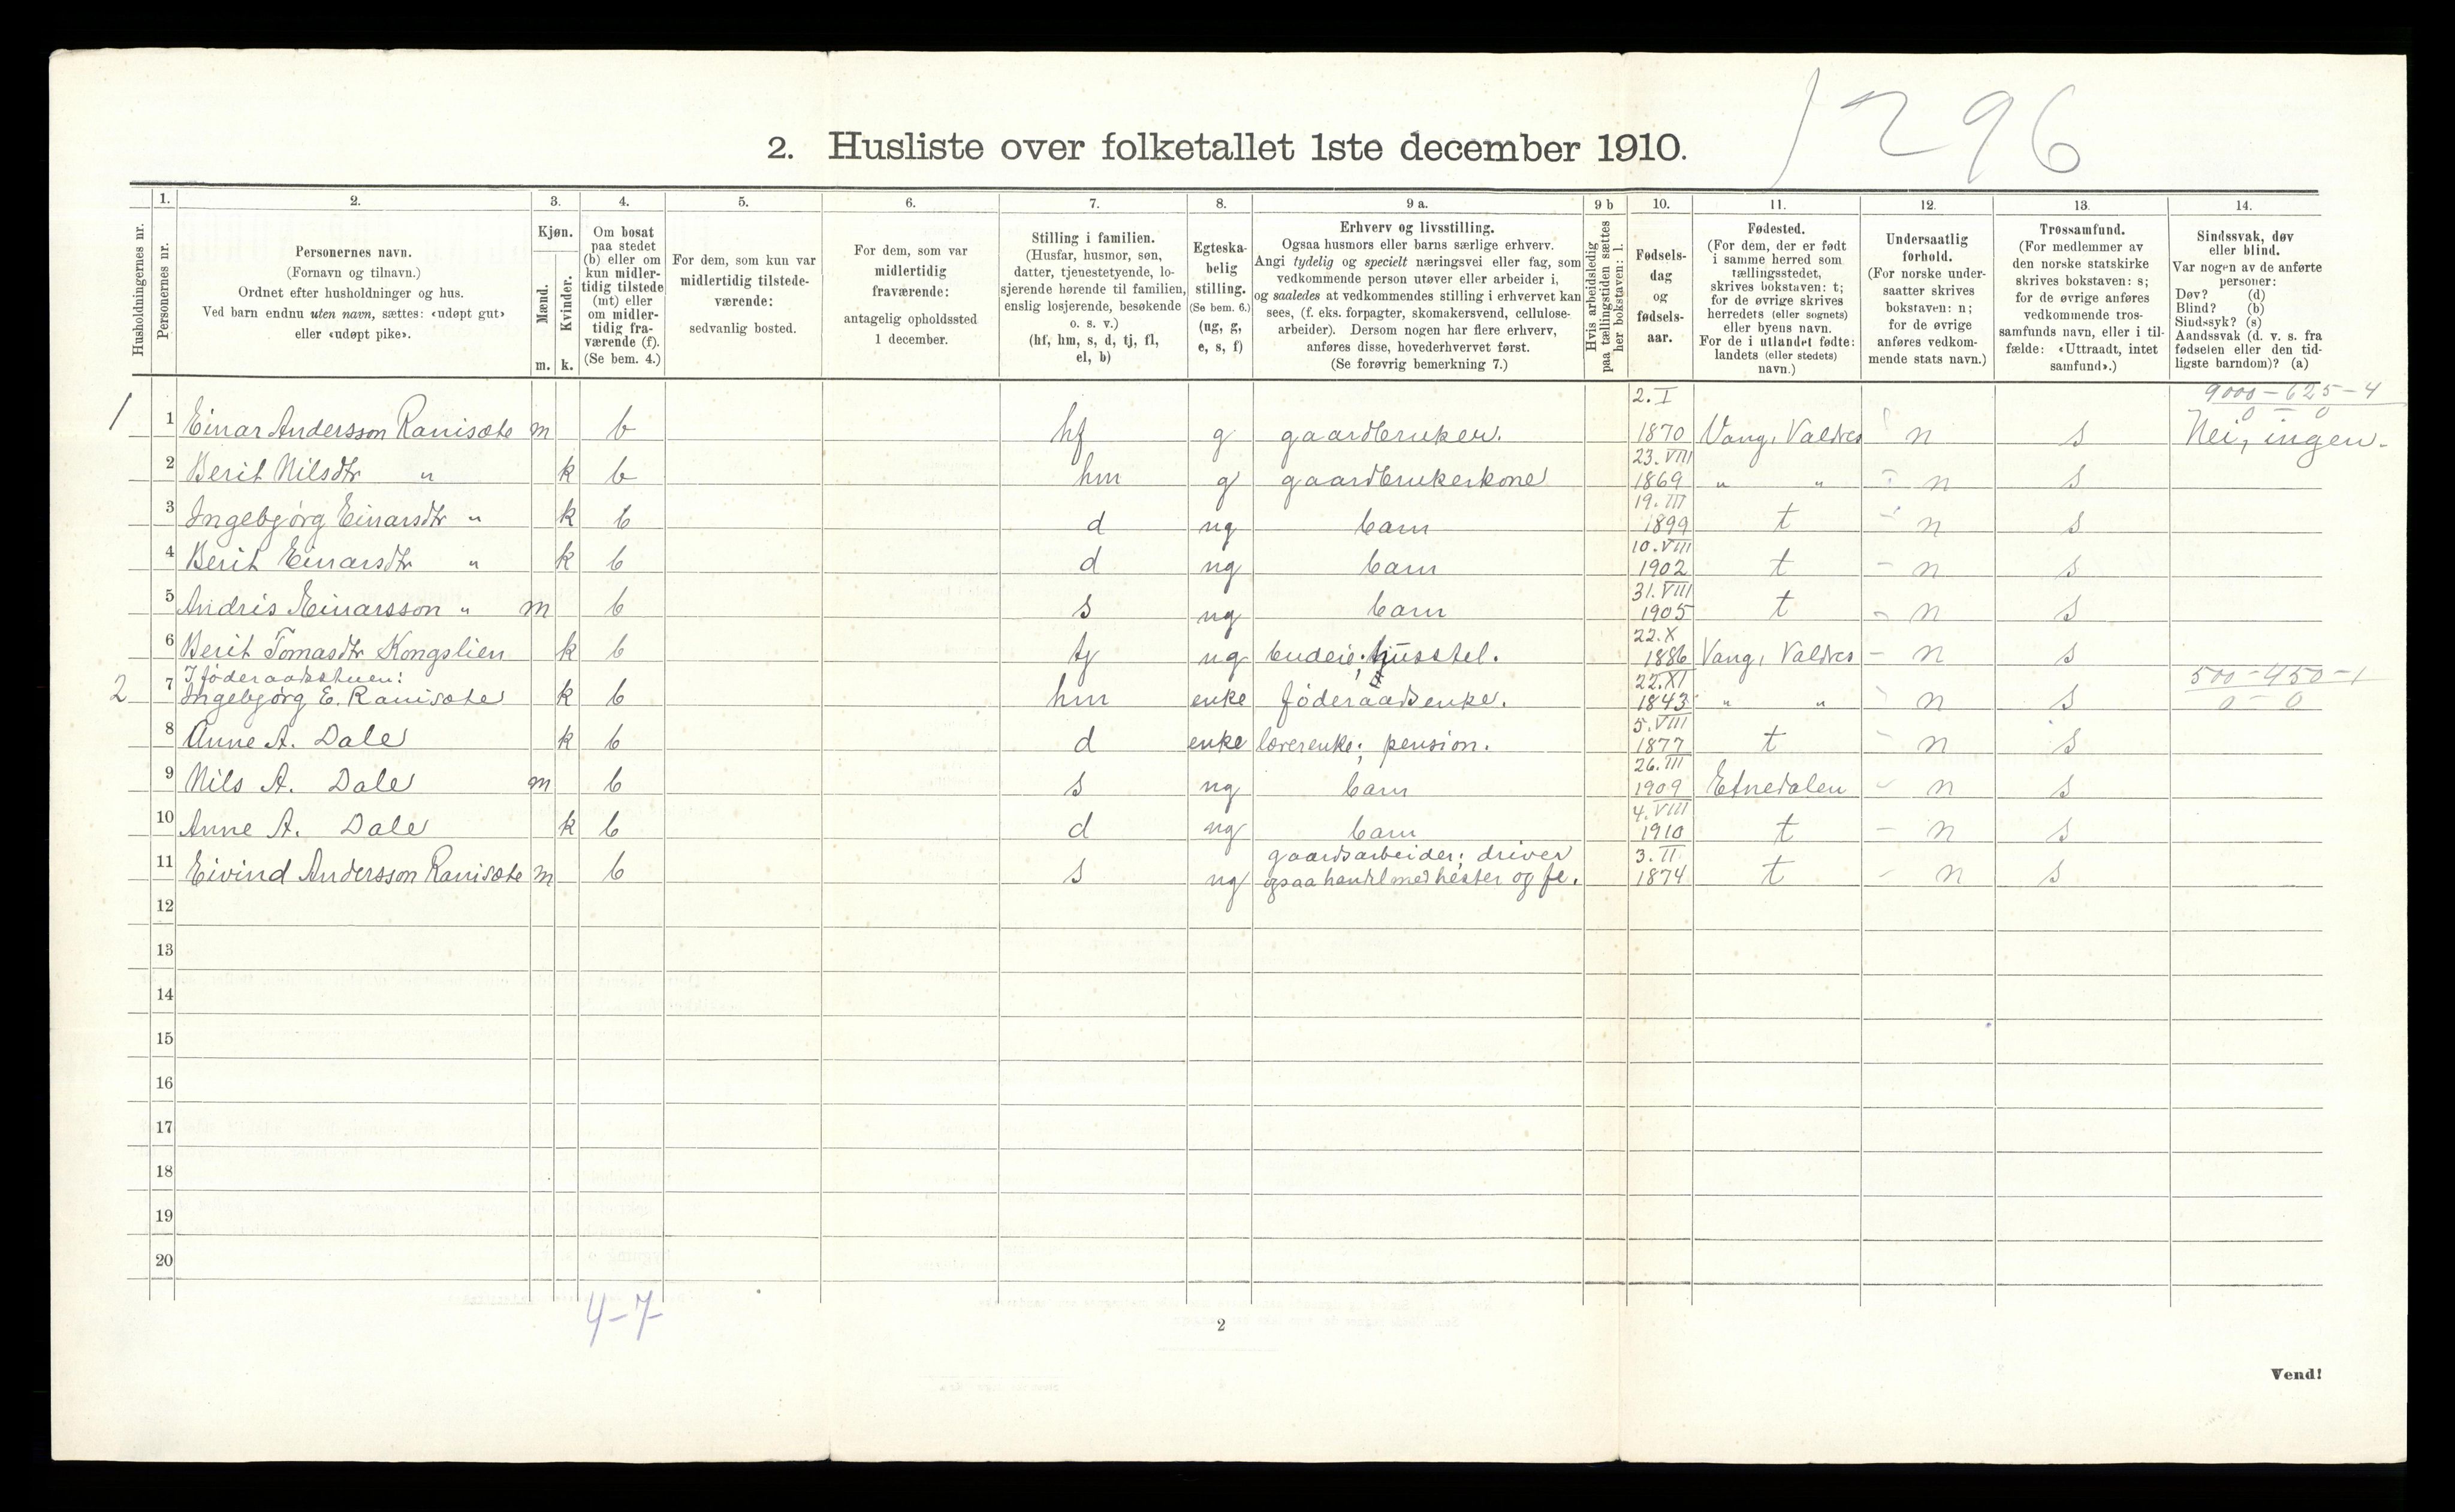 1296
2. Husliste over folketallet 1ste december 1910.
Husholdningernes nr.
1.
Personernes nr.
2.
Personernes navn.
(Fornavn og tilnavn.)
Ordnet efter husholdninger og hus.
Ved barn endnu uten navn, sættes: «udøpt gut»
eller «udøpt pike».
3.
Kjøn.
Mænd.
Kvinder.
m. k.
4.
Om bosat
paa stedet
(b) eller om
kun midler-
tidig tilstede
(mt) eller
om midler-
tidig fra-
værende (f).
(Se bem. 4.)
5.
For dem, som kun var
midlertidig tilstede-
værende:
sedvanlig bosted.
6.
For dem, som var
midlertidig
fraværende:
antagelig opholdssted
1 december.
7.
Stilling i familien.
(Husfar, husmor, søn,
datter, tjenestetyende, lo-
sjerende hørende til familien,
enslig losjerende, besøkende
o. s. v.)
(hf, hm, s, d, tj, fl,
el, b)
8.
Egteska-
belig
stilling.
(Se bem. 6.)
(ug, g,
e, s, f)
9 a.
Erhverv og livsstilling.
Ogsaa husmors eller barns særlige erhverv.
Angi tydelig og specielt næringsvei eller fag, som
vedkommende person utøver eller arbeider i,
og saaledes at vedkommendes stilling i erhvervet kan
sees, (f. eks. forpagter, skomakersvend, cellulose-
arbeider). Dersom nogen har flere erhverv,
anføres disse, hovederhvervet først.
(Se forøvrig bemerkning 7.)
9 b
Hvis arbeidsledig
paa tællingstiden sættes
her bokstaven: l.
10.
Fødsels-
dag
og
fødsels-
aar.
11.
Fødested.
(For dem, der er født
i samme herred som
tællingsstedet,
skrives bokstaven: t;
for de øvrige skrives
herredets (eller sognets)
eller byens navn.
For de i utlandet fødte:
landets (eller stedets)
navn.)
12.
Undersaatlig
forhold.
(For norske under-
saatter skrives
bokstaven: n;
for de øvrige
anføres vedkom-
mende stats navn.)
13.
Trossamfund.
(For medlemmer av
den norske statskirke
skrives bokstaven: s;
for de øvrige anføres
vedkommende tros-
samfunds navn, eller i til-
fælde: «Uttraadt, intet
samfund».)
14.
Sindssvak, døv
eller blind.
Var nogen av de anførte
personer:
Døv? (d)
Blind? (b)
Sindssyk? (s)
Aandssvak (d. v. s. fra
fødselen eller den tid-
ligste barndom)? (a)
2. I 9000 - 625 - 4
0 - 0
1 1 Einar Andersson Ranisæte m b hf g gaardbruker. 1870 Vang, Valdres n s Nei, ingen.
23. VIII
2 Berit Nilsdtr " k b hm g gaardbrukerkone 1869 " " n s
19. III
3 Ingebjørg Einarsdtr " k b d ug barn 1899 t n s
10. VIII
4 Berit Einarsdtr " k b d ug barn 1902 t n s
31. VIII
5 Andris Einarsson " m b s ug barn 1905 t n s
22. X
6 Berit Tomasdtr Kongslien k b tj ug budeie; husstel. 1886 Vang, Valdres n s
I føderaadsstuen: 22. XI 500 - 450 - 1
2 7 Ingebjørg E. Ranisæte k b hm enke føderaadsenke. 1843 " " n s 0 - 0
5. VIII
8 Anne A. Dale k b d enke lærerenke; pension. 1877 t n s
26. III
9 Nils A. Dale m b s ug barn 1909 Etnedalen n s
4. VIII
10 Anne A. Dale k b d ug barn 1910 t n s
gaardsarbeider; driver 3. II
11 Eivind Andersson Ranisæte m b s ug ogsaa handel med hester og fe. 1874 t n s
12
13
14
15
16
17
18
19
20
4-7
2
Vend!